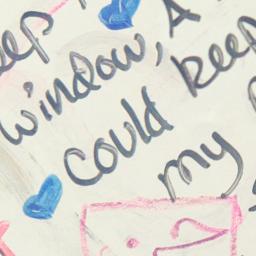 eep
window, A
could keep
my